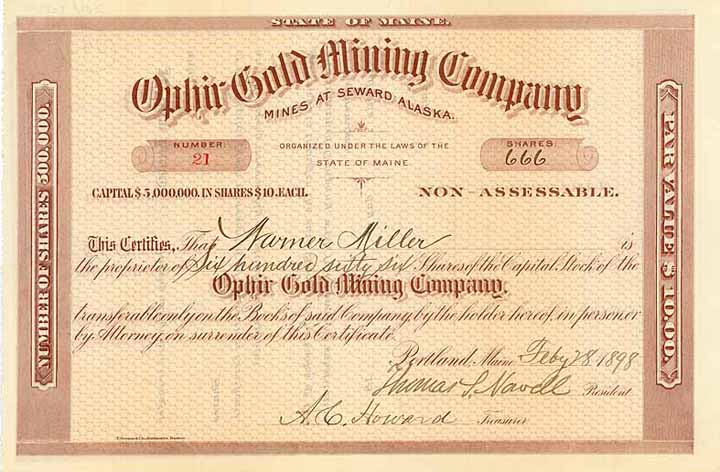 STATE OF MAINE.
Ophir Gold Mining Company
MINES AT SEWARD ALASKA.
NUMBER:
21
ORGANIZED UNDER THE LAWS OF THE
STATE OF MAINE.
SHARES:
666
CAPITAL $5,000,000. IN SHARES $10. EACH.
NON-ASSESSABLE.
This Certifies, That Warner Miller is
the proprietor of Six hundred sixty six Shares of the Capital Stock of the
Ophir Gold Mining Company,
transferable only on the Books of said Company by the holder hereof, in person or
by Attorney, on surrender of this Certificate.
Portland, Maine Feby 28 1898
Thomas S. President
A. C. Howard Treasurer
NUMBER OF SHARES 500,000.
PAR VALUE $10.00.